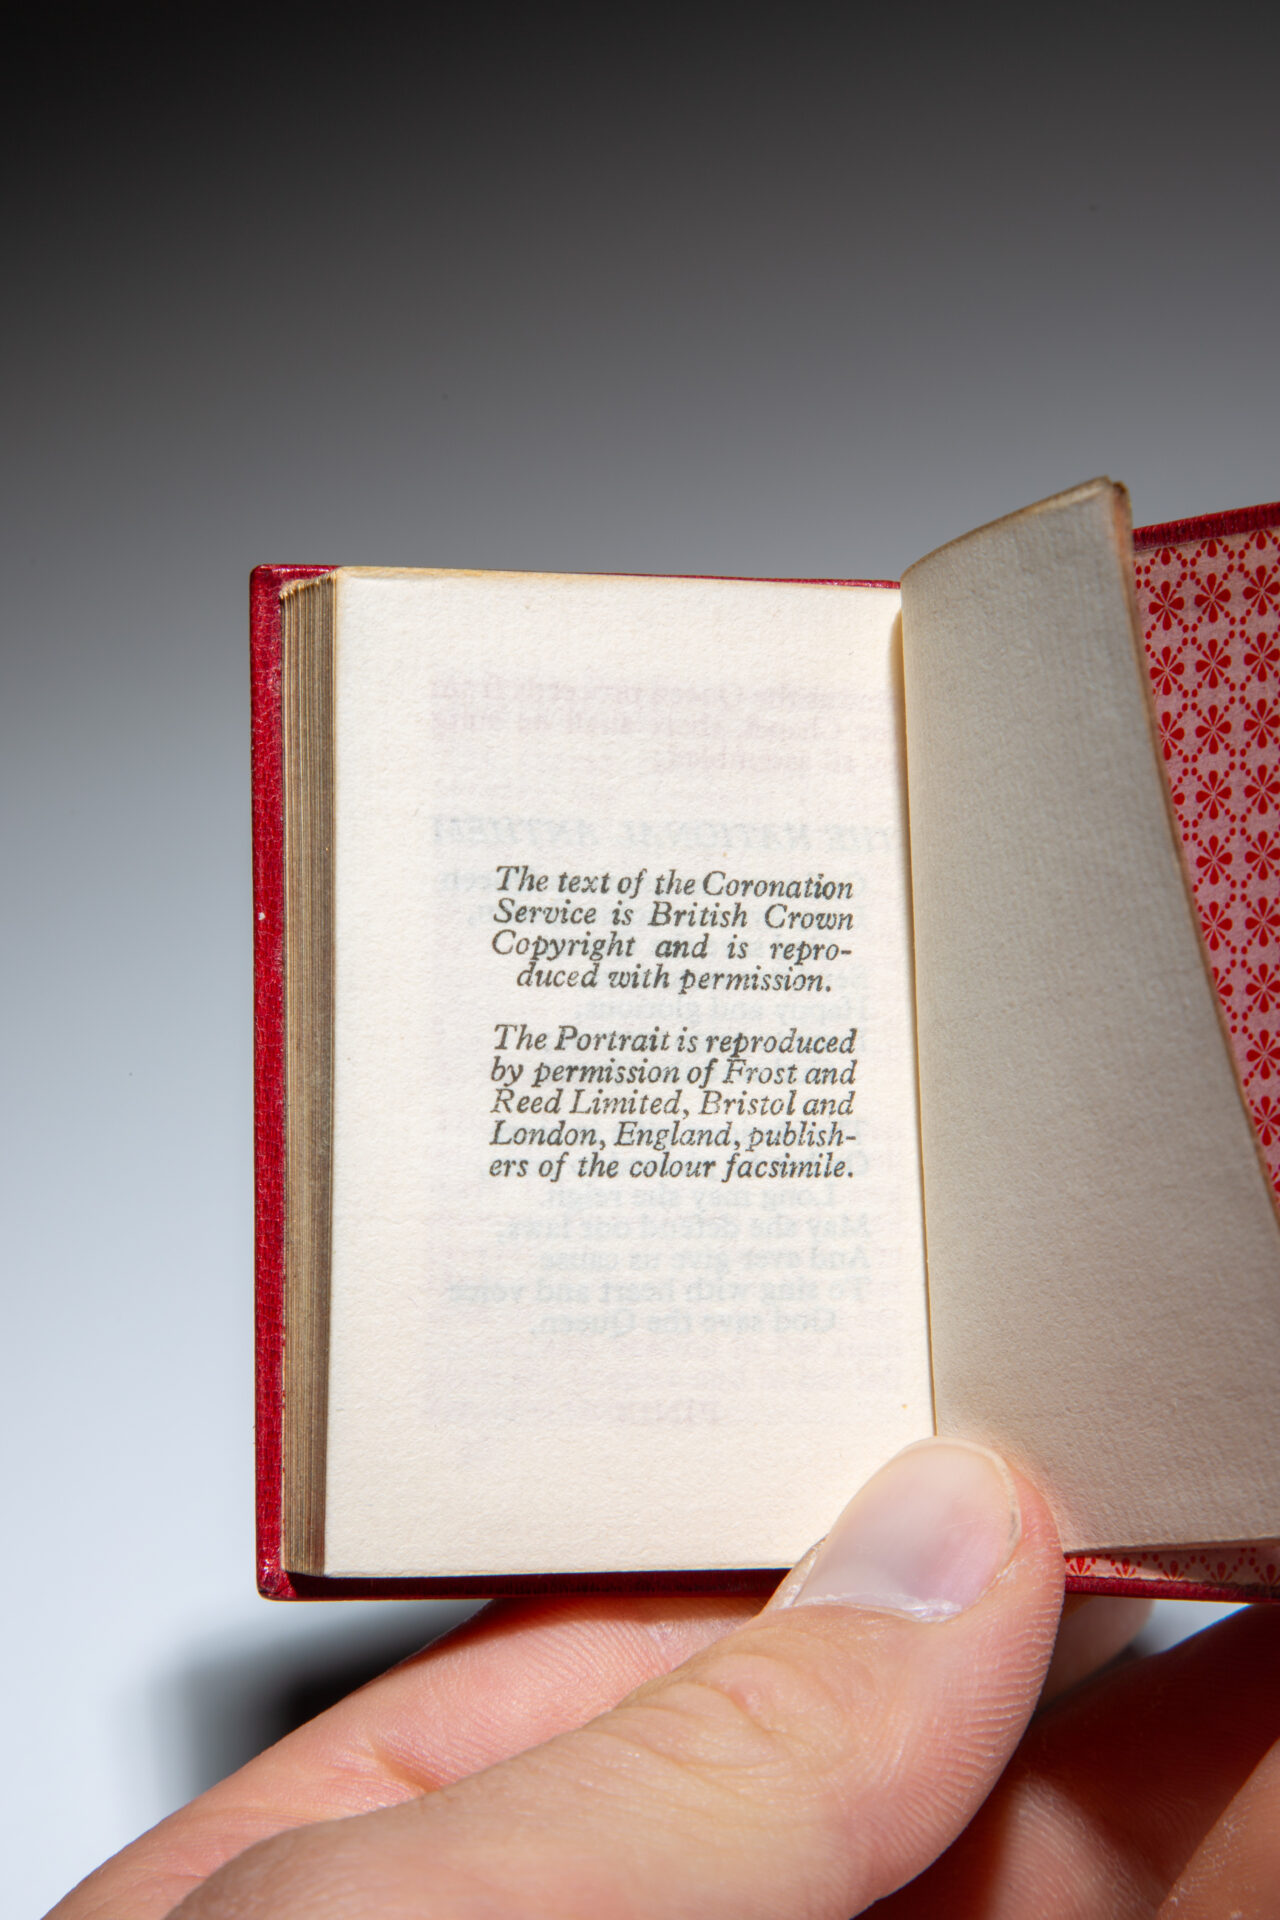 The text of the Coronation
Service is British Crown
Copyright and is repro-
duced with permission.
The Portrait is reproduced
by permission of Frost and
Reed Limited, Bristol and
London, England, publish-
ers of the colour facsimile.